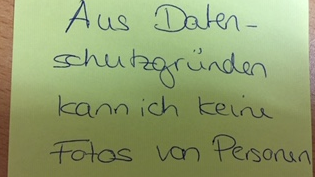 Aus Daten-
schutzgründen
kann ich keine
Fotos von Personen